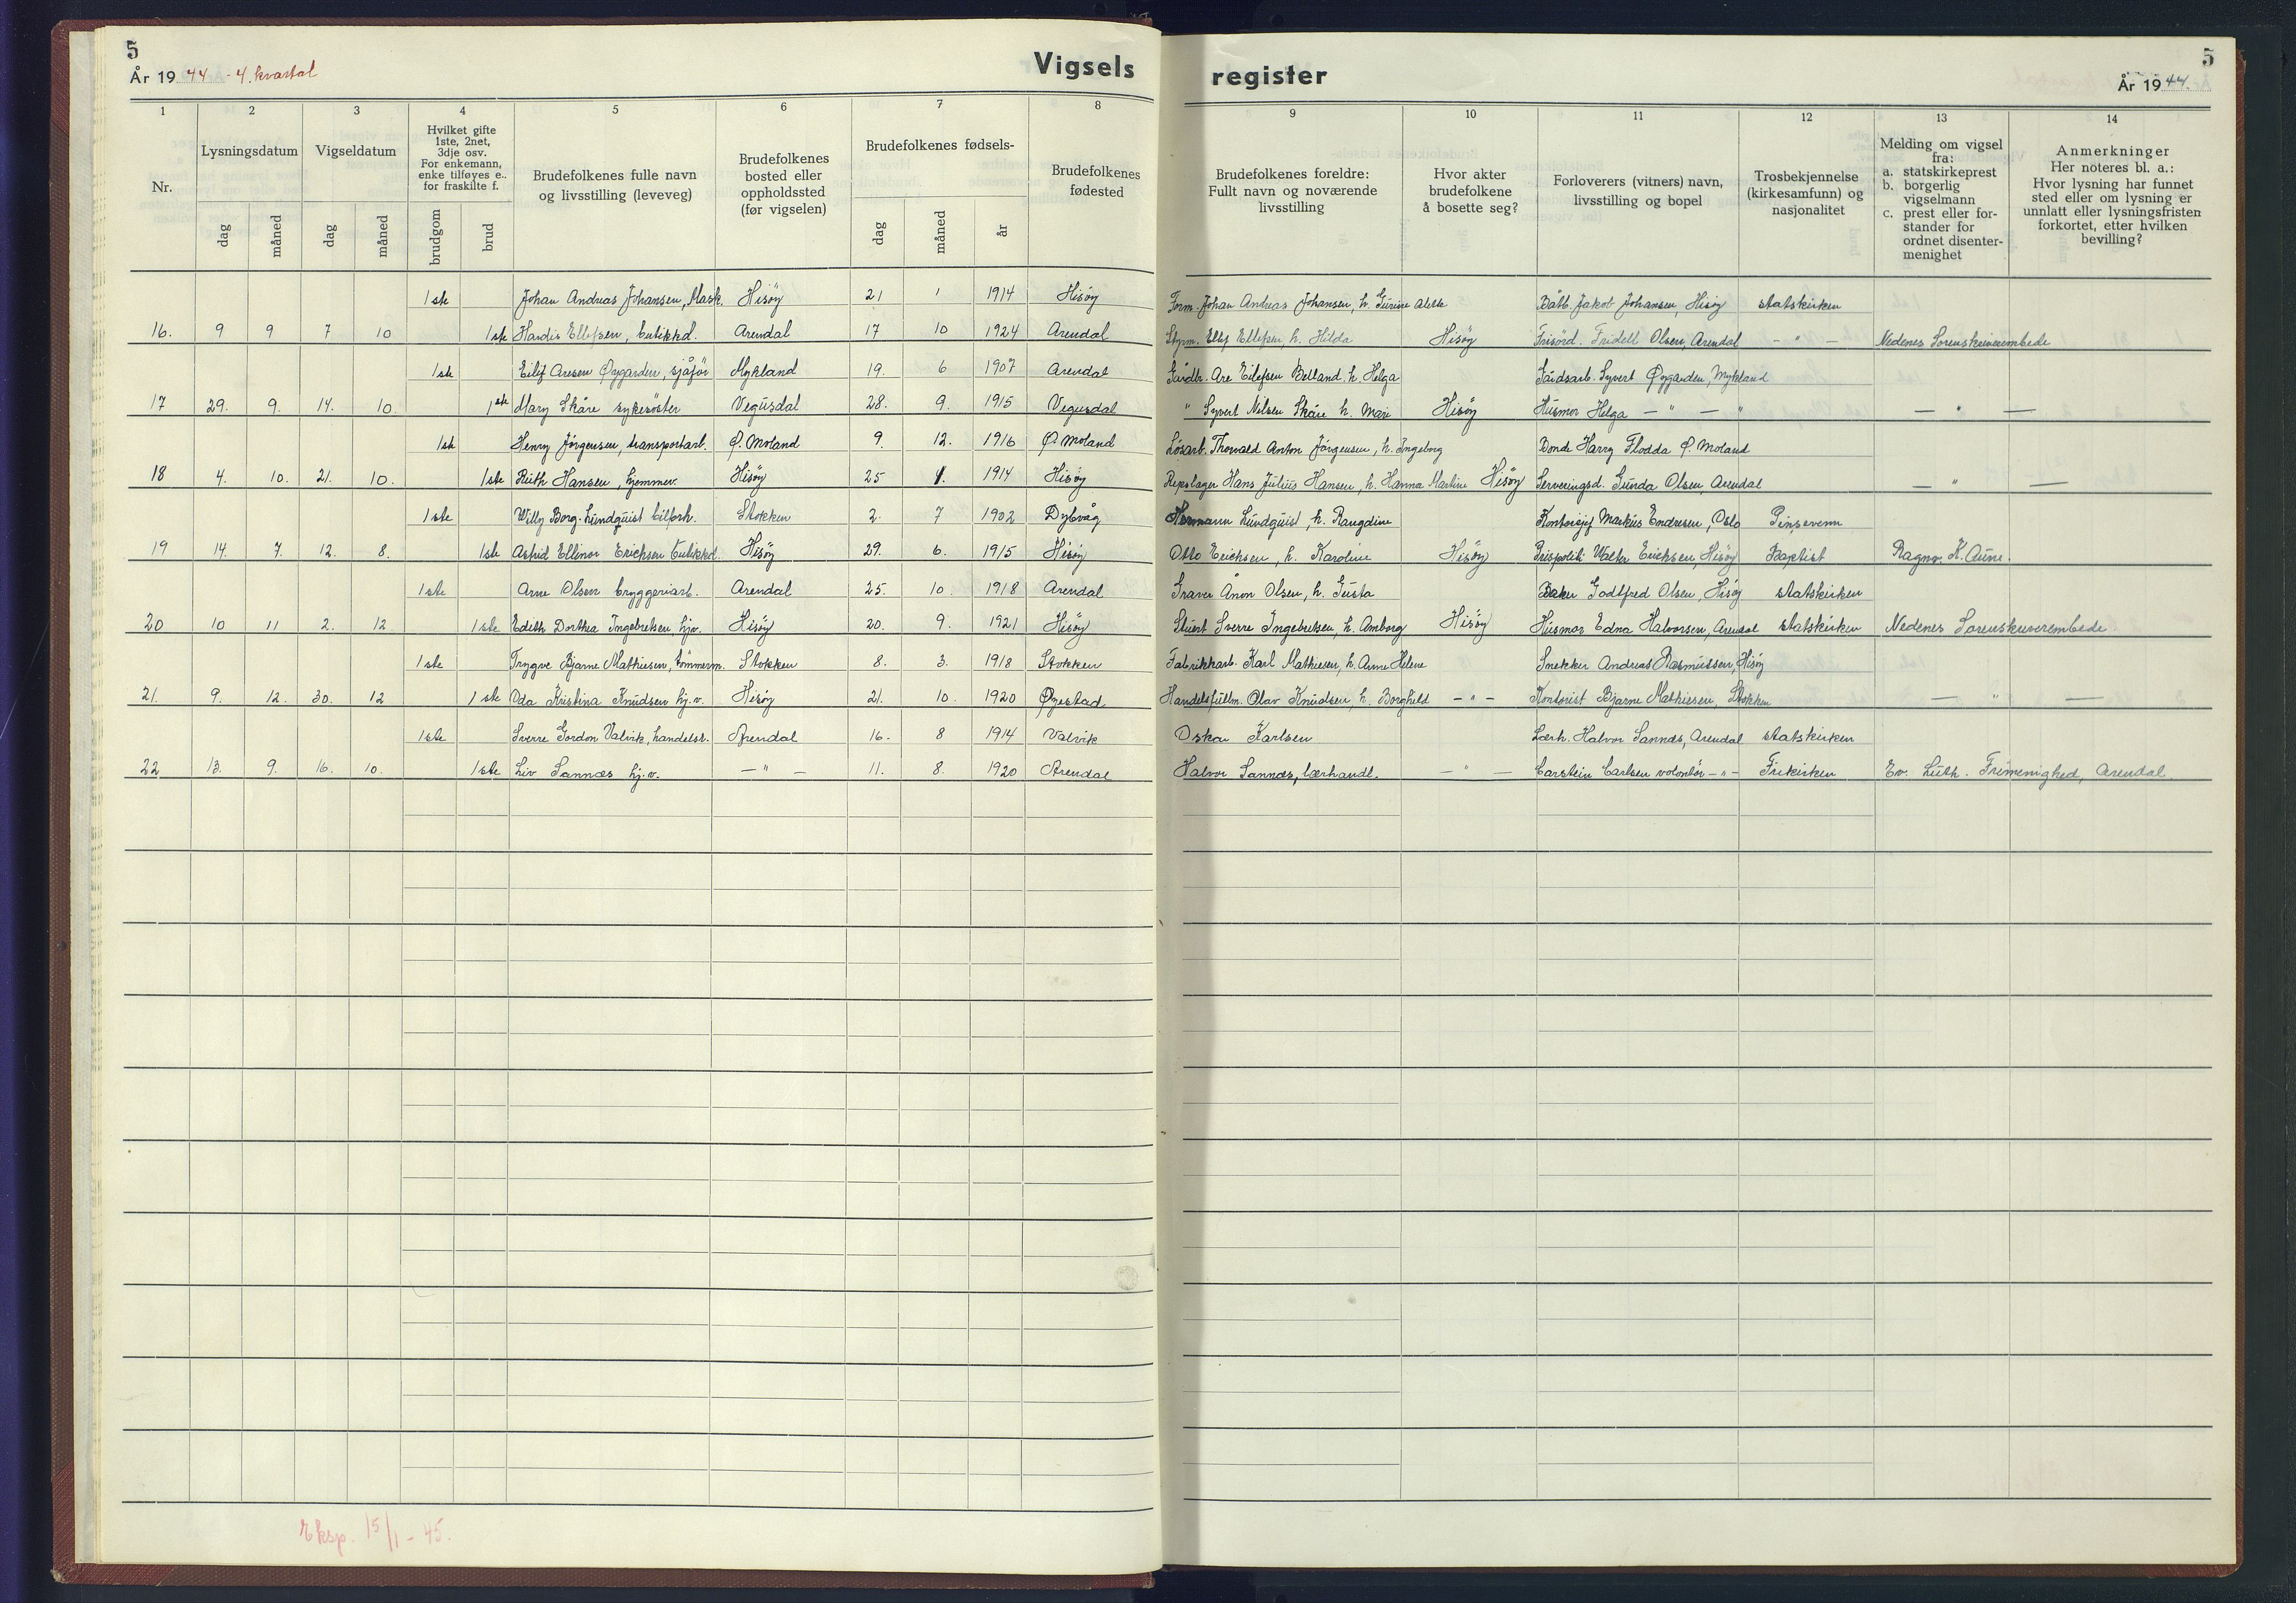 5
År 19 44 - 4. kvartal
Vigsels
register
5
År 19 44.
1 2 3 4 5 6 7 8 9 10 11 12 13 14
Nr.
Lysningsdatum
dag måned
Vigseldatum
dag måned
Hvilket gifte
1ste, 2net,
3dje osv.
For enkemann,
enke tilføyes e..
for fraskilte f.
brudgom brud
Brudefolkenes fulle navn
og livsstilling (leveveg)
Brudefolkenes
bosted eller
oppholdssted
(før vigselen)
Brudefolkenes fødsels-
dag måned år
Brudefolkenes
fødested
Brudefolkenes foreldre:
Fullt navn og noværende
livsstilling
Hvor akter
brudefolkene
å bosette seg?
Forloverers (vitners) navn,
livsstilling og bopel
Trosbekjennelse
(kirkesamfunn) og
nasjonalitet
Melding om vigsel
fra:
a. statskirkeprest
b. borgerlig
vigselmann
c. prest eller for-
stander for
ordnet disenter-
menighet
Anmerkninger
Her noteres bl. a.:
Hvor lysning har funnet
sted eller om lysning er
unnlatt eller lysningsfristen
forkortet, etter hvilken
bevilling?
1ste Johan Andreas Johansen, Mask. Hisöy 21 1 1914 Hisöy Form Johan Andreas Johansen, h. Gurine Båtb. Jakob Johansen, Hisöy statskirken
16. 9 9 7 10 1ste Hardis Ellefsen, butikkd. Arendal 17 10 1924 Arendal Styrm. Ellef Ellefsen h. Hilda Hisöy Frisörd. Fridell Olsen, Arendal - " - Nedenes Sorenskriverembede
1ste Eilif Aresen Øygarden, sjåför Mykland 19. 6 1907 Arendal Gårdbr. Are Eilefsen Belland h. Helga Gårdsarb. Syvert Øygarden, Mykland
17 29. 9. 14. 10. 1ste Mary Skåre sykesöster Vegusdal 28. 9. 1915 Vegusdal " Syvert Nilsen Skåre h. Mari Hisöy Husmor Helga - " - " - " -
1ste Henry Jörgensen, transportarb. Ø. Moland 9. 12. 1916 Ø. Moland Lösarb. Thorvald Anton Jörgensen, h. Ingeborg Bonde Harry Flodda Ø. Moland
18 4. 10. 21. 10. 1ste Ruth Hansen, hjemmev. Hisöy 25 1. 1914 Hisöy Repslager Hans Julius Hansen, h. Hanna Martine Hisöy Serveringsd. Gunda Olsen, Arendal - " -
1ste Willy Borg-Lundquist bilforh. Stokken 2. 7 1902 Dybvåg Hermann Lundquist, h. Raugdine Kontorsjef Markus Endresen, Oslo Pinsevenn
19 14. 7. 12. 8. 1ste Astrid Ellinor Erichsen butikkd. Hisöy 29. 6. 1915 Hisöy Otto Erichsen, h. Karoline Hisöy Prispoliti Walter Erichsen, Hisöy Baptist Ragnv. K. Aune.
1ste Arne Olsen bryggeriarb. Arendal 25. 10. 1918 Arendal Graver Anon Olsen, h. Gusta Baker Godtfred Olsen, Hisöy statskirken
20 10 11 2. 12 1ste Edith Dorthea Ingebretsen, hjv. Hisöy 20. 9. 1921 Hisöy Stuert Sverre Ingebretsen, h. Amborg Hisöy Husmor Edna Halvorsen, Arendal statskirken Nedenes Sorenskriverembede
1ste Trygve Bjarne Mathiesen, tömmerm. Stokken 8. 3. 1918 Stokken Fabrikkarb. Karl Mathiesen, h. Anne Helene Snekker Andreas Rasmussen, Hisöy
21. 9. 12. 30. 12 1ste Oda Kristina Knudsen hj.v. Hisöy 21. 10. 1920 Øyestad Handelsfullm. Olav Knudsen, h. Borghild - " - Kontorist Bjarne Mathiesen, Stokken - " -
1ste Sverre Gordon Valvik, handelsr. Arendal 16. 8 1914 Valvik Oskar Karlsen Lærh. Halvor Sannæs, Arendal statskirken
22 13. 9. 16. 10. 1ste Liv Sannæs hj.v. - " - 11. 8. 1920 Arendal Halvor Sannæs, lærhandl. - " - Carstein Carlsen volontör - " - Frikirken Ev. Luth. Frimenighed, Arendal.
Eksp. 15/1 - 45.